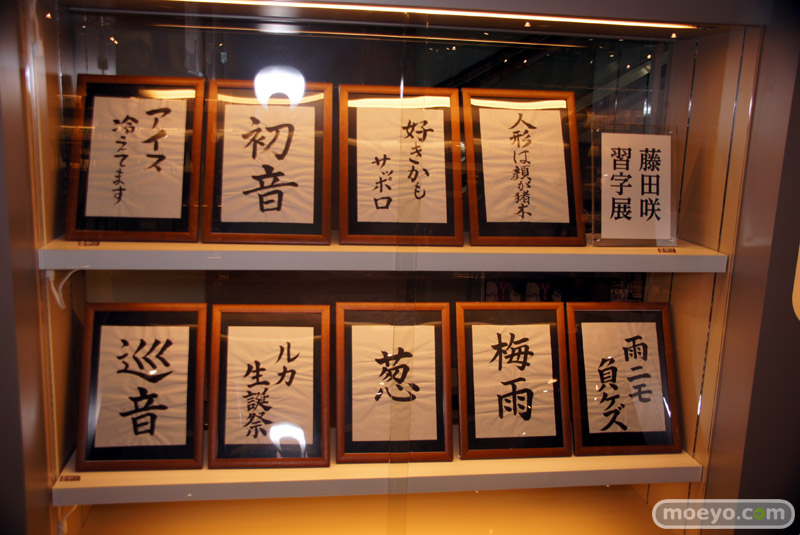 アイス
冷えてます
初音
好きかも
サッポロ
人形は顔が猪木
藤田咲
習字展
巡音
ルカ
生誕祭
葱
梅雨
雨ニモ
負ケズ
moeyo.com